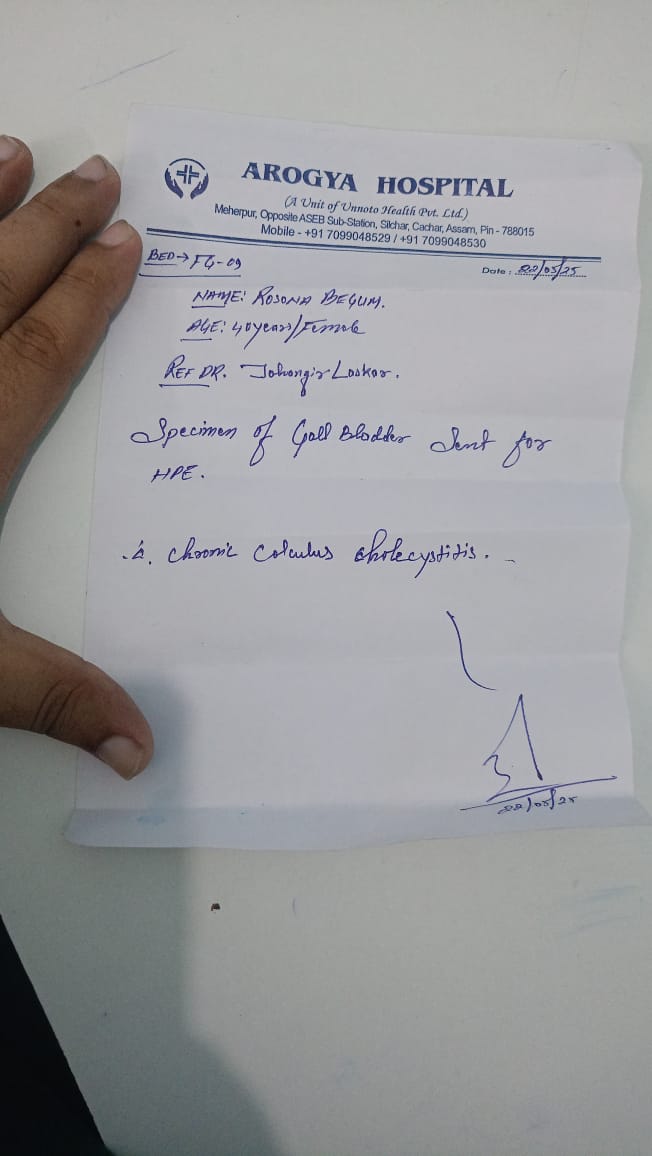 AROGYA HOSPITAL
(A Unit of Unnoto Health Pvt. Ltd.)
Meherpur, Opposite ASEB Sub-Station, Silchar, Cachar, Assam, Pin - 788015
Mobile - +91 7099048529 / +91 7099048530
BED→ FG-09
Date : 22/05/25
NAME: ROSONA BEGUM.
AGE: 40years/Female
REF DR. Jahangir Laskar.
Specimen of Gall Bladder Sent for
HPE.
Chronic Calculus cholecystitis.
22/05/25